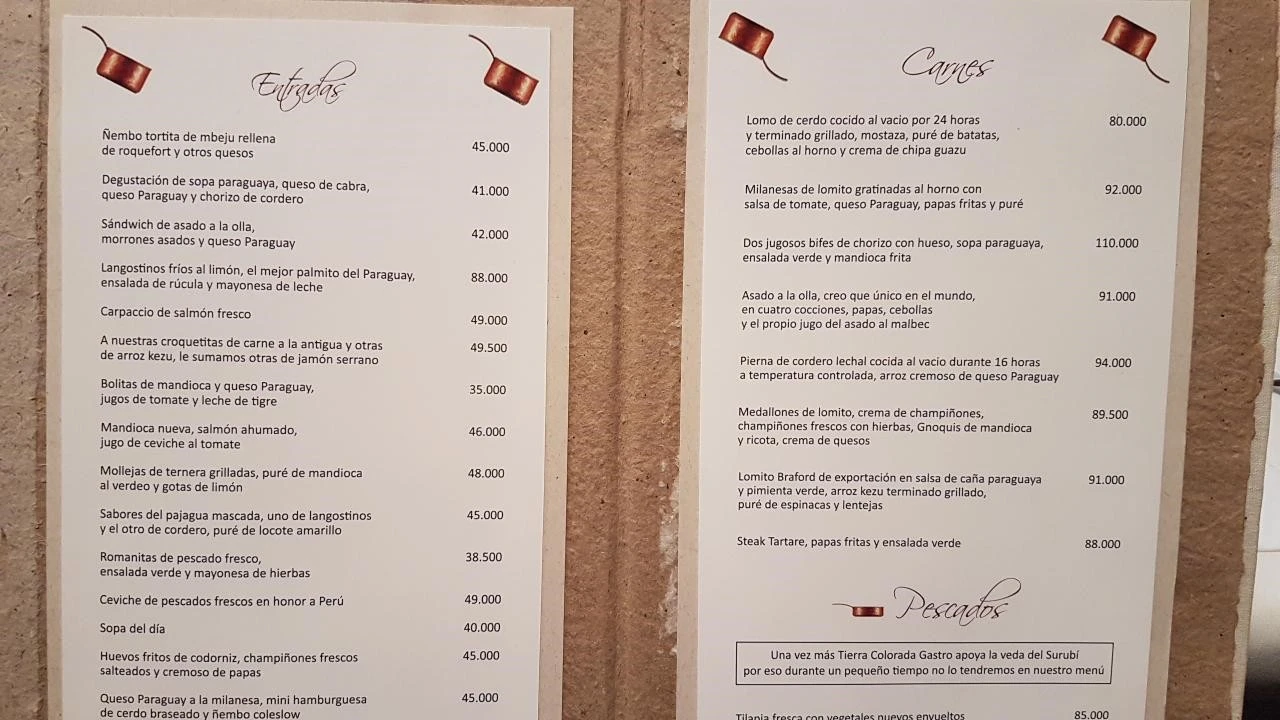 Entradas
Ñembo tortita de mbeju rellena
de roquefort y otros quesos 45.000
Degustación de sopa paraguaya, queso de cabra,
queso Paraguay y chorizo de cordero 41.000
Sándwich de asado a la olla,
morrones asados y queso Paraguay 42.000
Langostinos fríos al limón, el mejor palmito del Paraguay,
ensalada de rúcula y mayonesa de leche 88.000
Carpaccio de salmón fresco 49.000
A nuestras croquetitas de carne a la antigua y otras
de arroz kezu, le sumamos otras de jamón serrano 49.500
Bolitas de mandioca y queso Paraguay,
jugos de tomate y leche de tigre 35.000
Mandioca nueva, salmón ahumado,
jugo de ceviche al tomate 46.000
Mollejas de ternera grilladas, puré de mandioca
al verdeo y gotas de limón 48.000
Sabores del pajagua mascada, uno de langostinos
y el otro de cordero, puré de locote amarillo 45.000
Romanitas de pescado fresco,
ensalada verde y mayonesa de hierbas 38.500
Ceviche de pescados frescos en honor a Perú 49.000
Sopa del día 40.000
Huevos fritos de codorniz, champiñones frescos
salteados y cremoso de papas 45.000
Queso Paraguay a la milanesa, mini hamburguesa
de cerdo braseado y ñembo coleslow 45.000
Carnes
Lomo de cerdo cocido al vacio por 24 horas 80.000
y terminado grillado, mostaza, puré de batatas,
cebollas al horno y crema de chipa guazu
Milanesas de lomito gratinadas al horno con 92.000
salsa de tomate, queso Paraguay, papas fritas y puré
Dos jugosos bifes de chorizo con hueso, sopa paraguaya, 110.000
ensalada verde y mandioca frita
Asado a la olla, creo que único en el mundo, 91.000
en cuatro cocciones, papas, cebollas
y el propio jugo del asado al malbec
Pierna de cordero lechal cocida al vacio durante 16 horas 94.000
a temperatura controlada, arroz cremoso de queso Paraguay
Medallones de lomito, crema de champiñones, 89.500
champiñones frescos con hierbas, Gnoquis de mandioca
y ricota, crema de quesos
Lomito Braford de exportación en salsa de caña paraguaya 91.000
y pimienta verde, arroz kezu terminado grillado,
puré de espinacas y lentejas
Steak Tartare, papas fritas y ensalada verde 88.000
Pescados
Una vez más Tierra Colorada Gastro apoya la veda del Surubí
por eso durante un pequeño tiempo no lo tendremos en nuestro menú
Tilapia fresca con vegetales nuevos envueltos 85.000